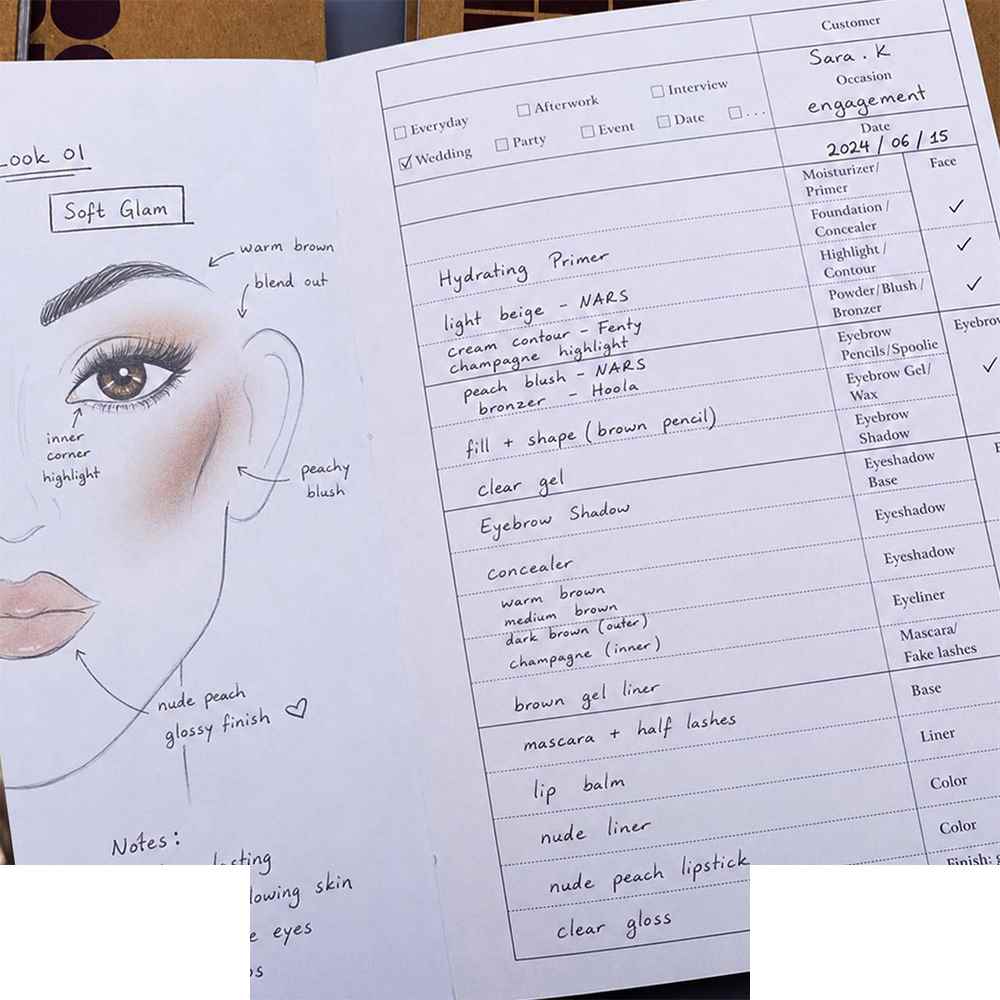 Look 01
Soft Glam
warm brown
blend out
inner
corner
highlight
peachy
blush
nude peach
glossy finish ♡
Notes:
skin
eyes
Customer
Sara . K
Occasion
engagement
Date
2024 / 06 / 15
☐ Everyday ☐ Afterwork ☐ Interview
☑ Wedding ☐ Party ☐ Event ☐ Date ☐ ...
Moisturizer/
Primer
Face
Foundation /
Concealer
✓
Highlight /
Contour
✓
Powder/Blush/
Bronzer
✓
Eyebrow
Pencils/Spoolie
Eyebrow Gel/
Wax
✓
Eyebrow
Shadow
Eyeshadow
Base
Eyeshadow
Eyeshadow
Eyeliner
Mascara/
Fake lashes
Base
Liner
Color
Color
Finish:
Hydrating Primer
light beige - NARS
cream contour - Fenty
champagne highlight
peach blush - NARS
bronzer - Hoola
fill + shape (brown pencil)
clear gel
Eyebrow Shadow
concealer
warm brown
medium brown
dark brown (outer)
champagne (inner)
brown gel liner
mascara + half lashes
lip balm
nude liner
nude peach lipstick
clear gloss